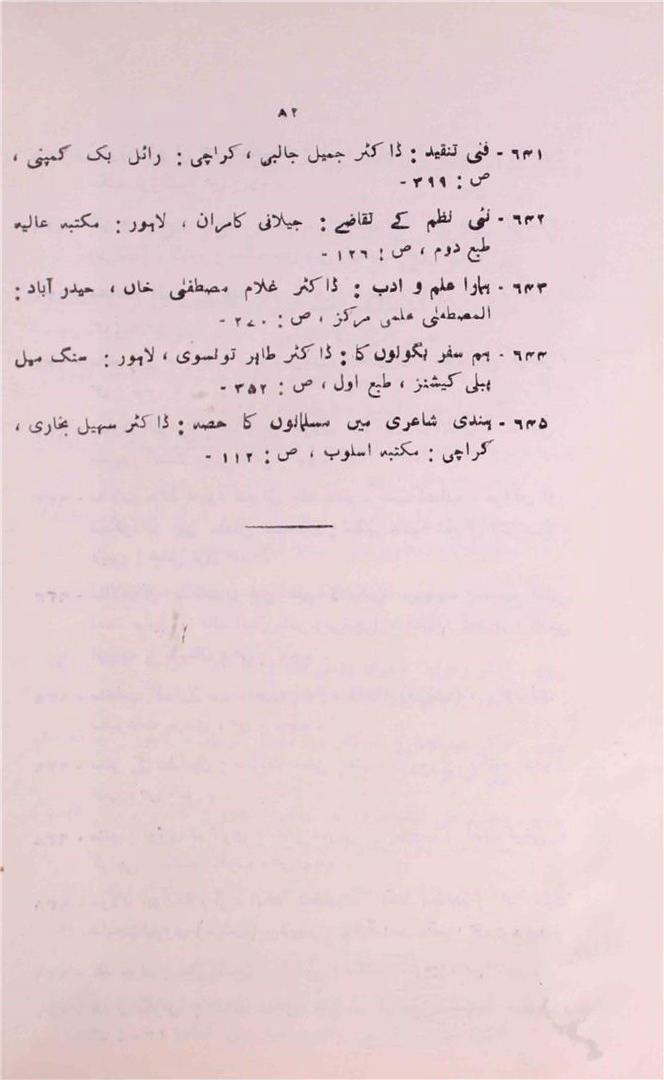 ۸۲
۶۴۱ - فنی تنقید : ڈاکٹر جمیل جالبی ، کراچی : رائل بک کمپنی ،
ص : ۳۹۹ -
۶۴۲ - نئی نظم کے تقاضے : جیلانی کامران ، لاہور : مکتبہ عالیہ
طبع دوم ، ص : ۱۲۶ -
۶۴۳ - ہمارا علم و ادب : ڈاکٹر غلام مصطفیٰ خاں ، حیدر آباد :
المصطفیٰ علمی مرکز ، ص : ۲۷۰ -
۶۴۴ - ہم سفر بگولوں کا : ڈاکٹر طاہر تونسوی ، لاہور : سنگ میل
پبلی کیشنز ، طبع اول ، ص : ۳۵۲ -
۶۴۵ - ہندی شاعری میں مسلمانوں کا حصہ : ڈاکٹر سہیل بخاری ،
کراچی : مکتبہ اسلوب ، ص : ۱۱۲ -